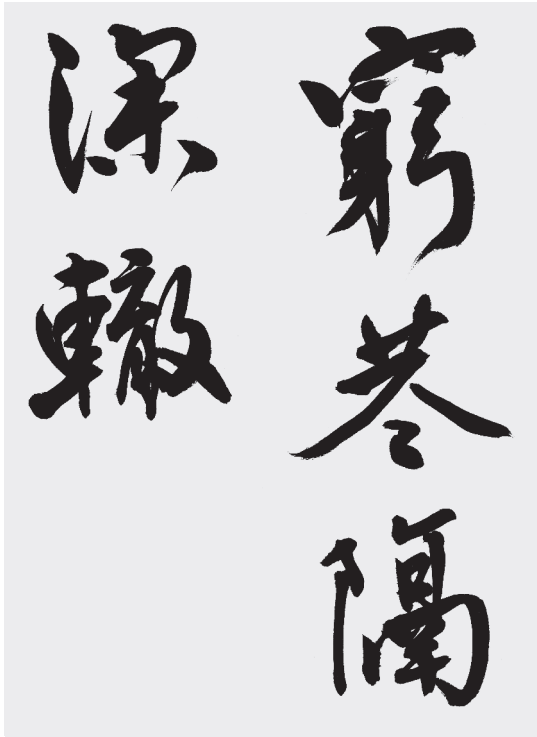 窮巷隔
深轍